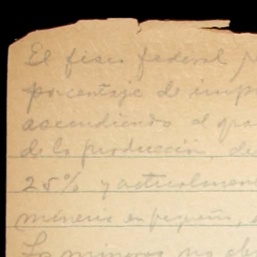 El fisco federal
porcentaje de imp
ascendiendo al gra
de la producción, de
25% y actualmen
minería en pequeño,
Los mineros no